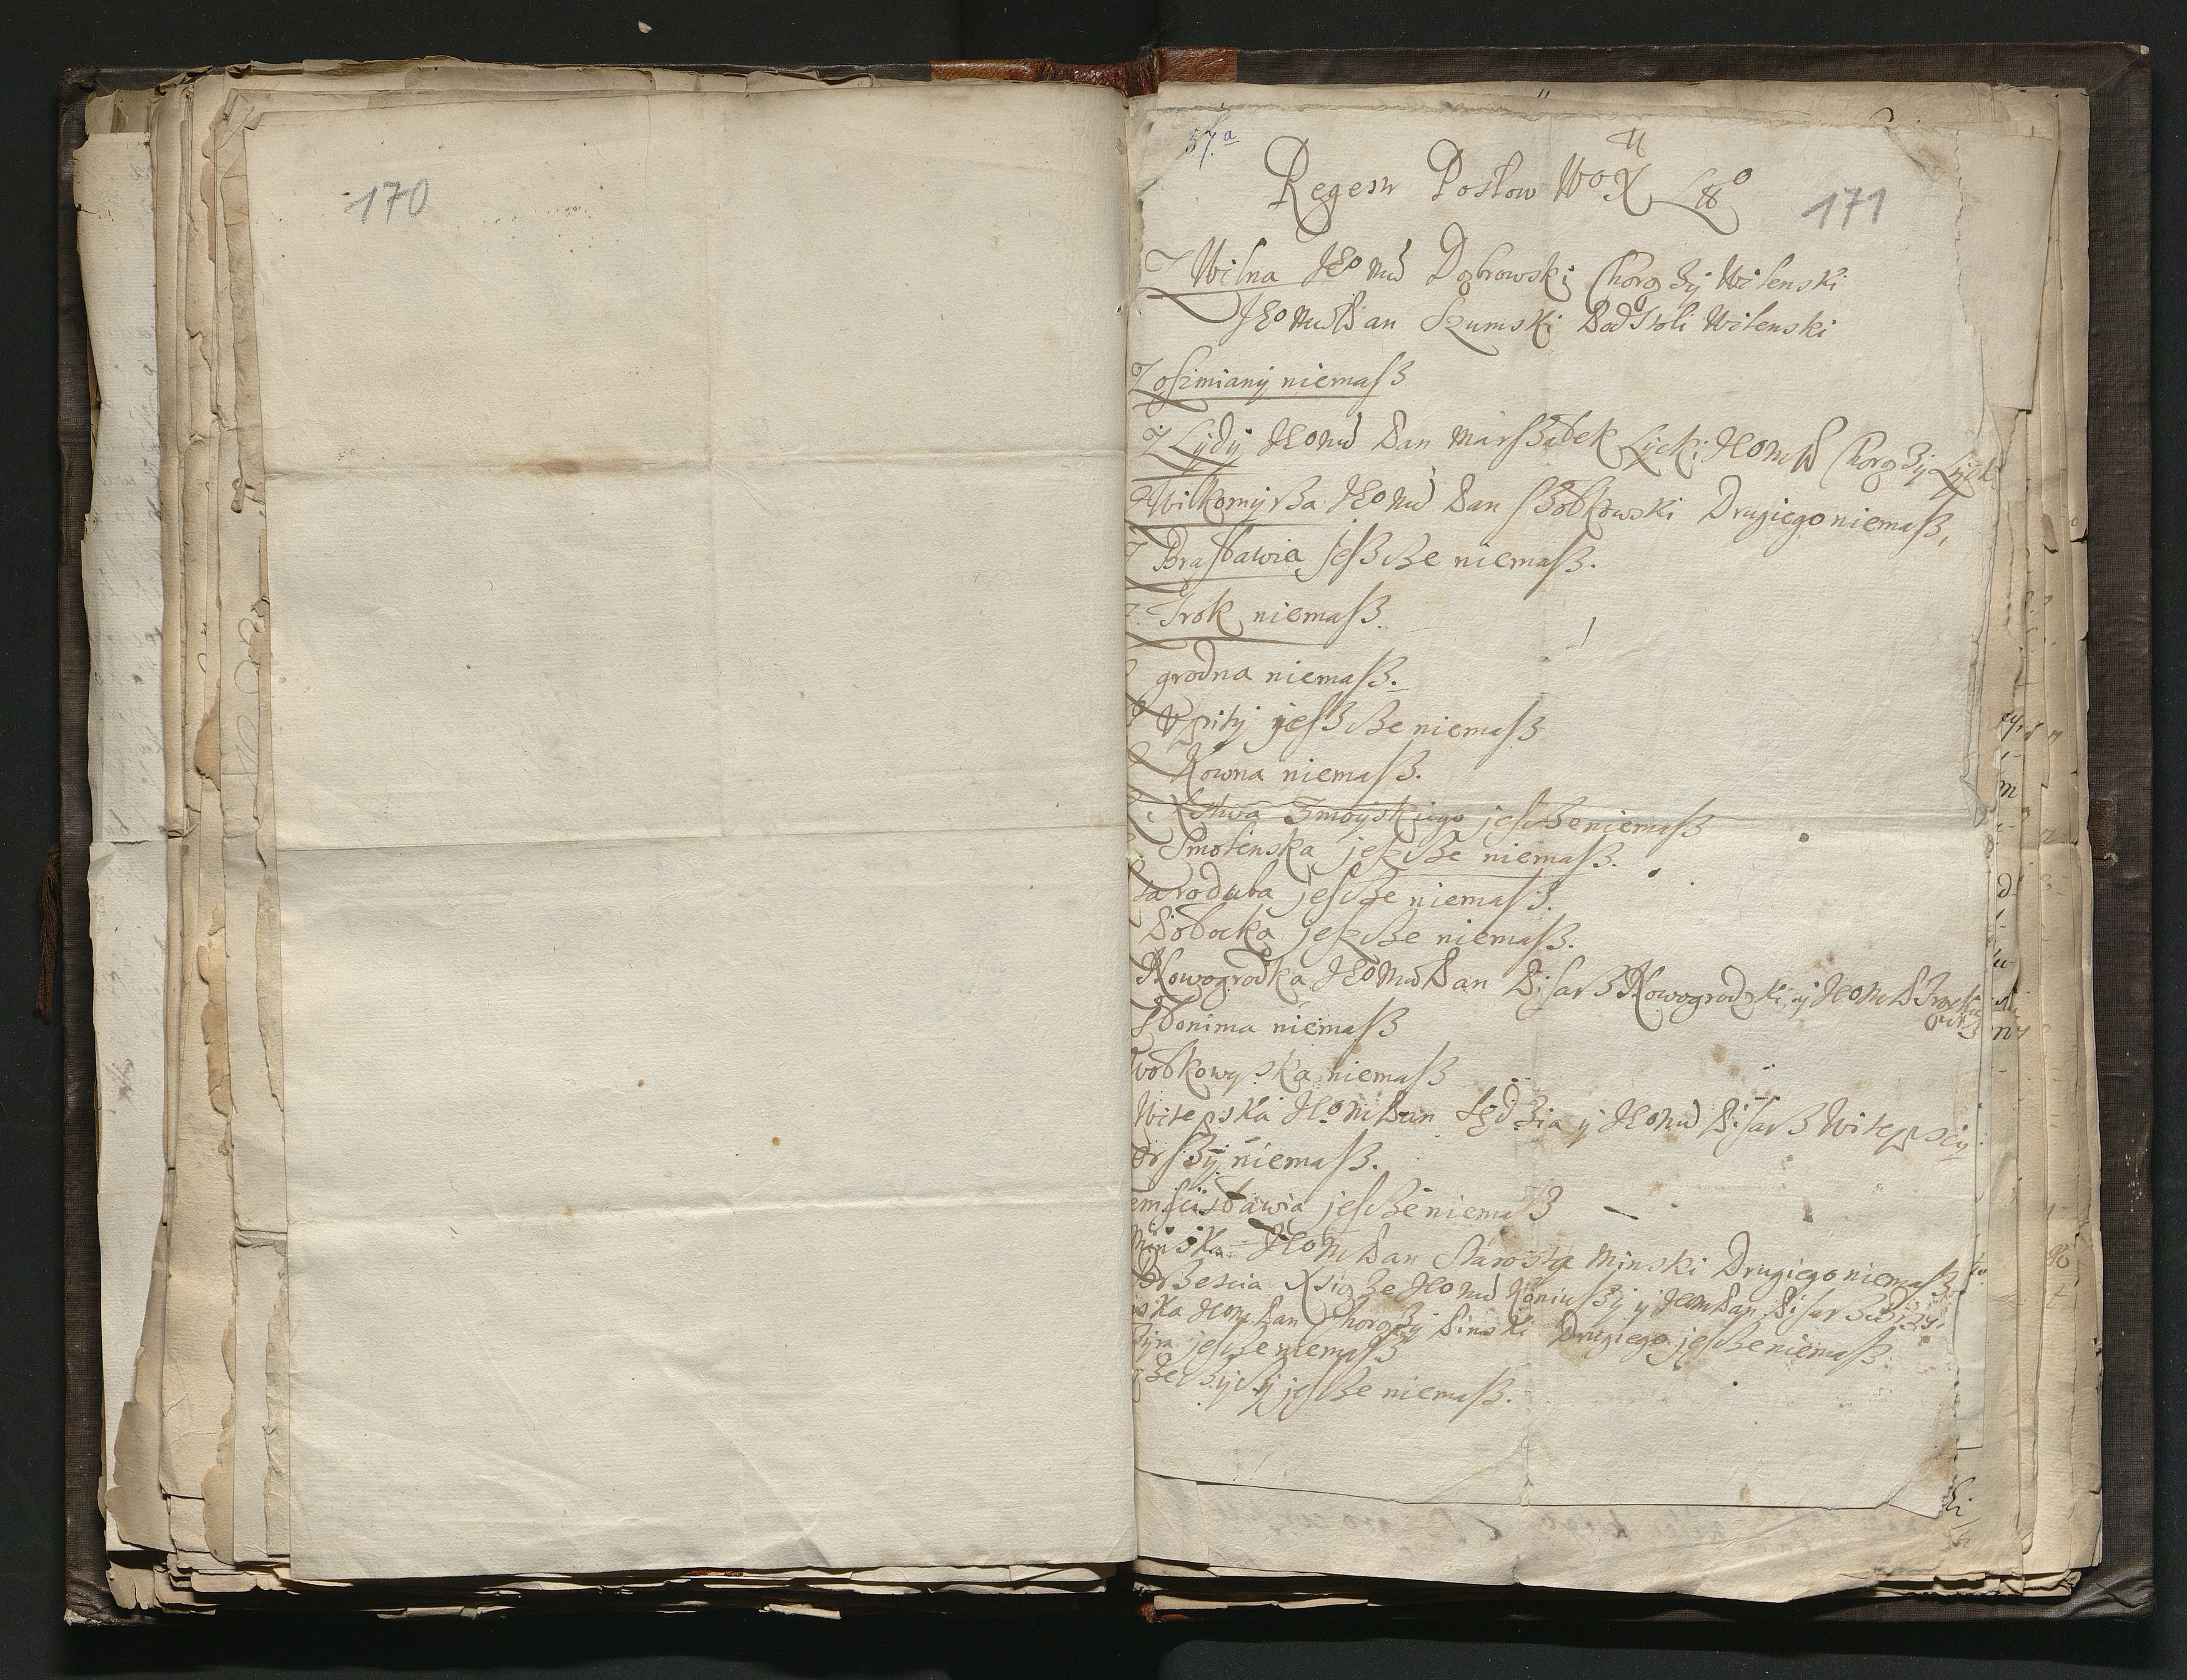 170
57.a
171
Regestr Posłow W o X Litto
Z Wilna JEo Msć Dąbrowski Chorąży Wilenski
JEo Msć Pan Szumski Podstoli Wilenski
Z oszmiany niemasz
Z Lydy JEo Msć Pan Marszałek Lycki JEo M P Chorąży Lyck
Z Wilkomyrza JEo Msć Pan Drugiego niemasz,
Z Brasławia jeszcze niemasz.
Z Trok niemasz.
grodna niemasz.
Z Vpity jeszcze niemasz
Z Kowna niemasz.
Z Xstwa Zmoyskiego jescze niemasz
Smolenska jeszcze niemasz.
taroduba jescze niemasz.
Połocka jeszcze niemasz.
Nowogrodka JEo Msć Pan Pisarz Nowogrodzki y JEo M P
Słonima niemasz
Wołkowyska niemasz
Witepska JEo M Pan Sędzia y JEo Msć Pisarz Witepscy
Orszy niemasz.
emscisławia jescze niemasz
Minska JEo M Pan Starosta Minski Drugiego niemasz
Brzescia Xsiąze JEo Msć Koniuszy y JEo M Pan Pisarz
ska JEo M Pan Chorąży Pinski Drugiego jescze niemasz
zyra jescze niemasz
Rzeczycy jescze niemasz.